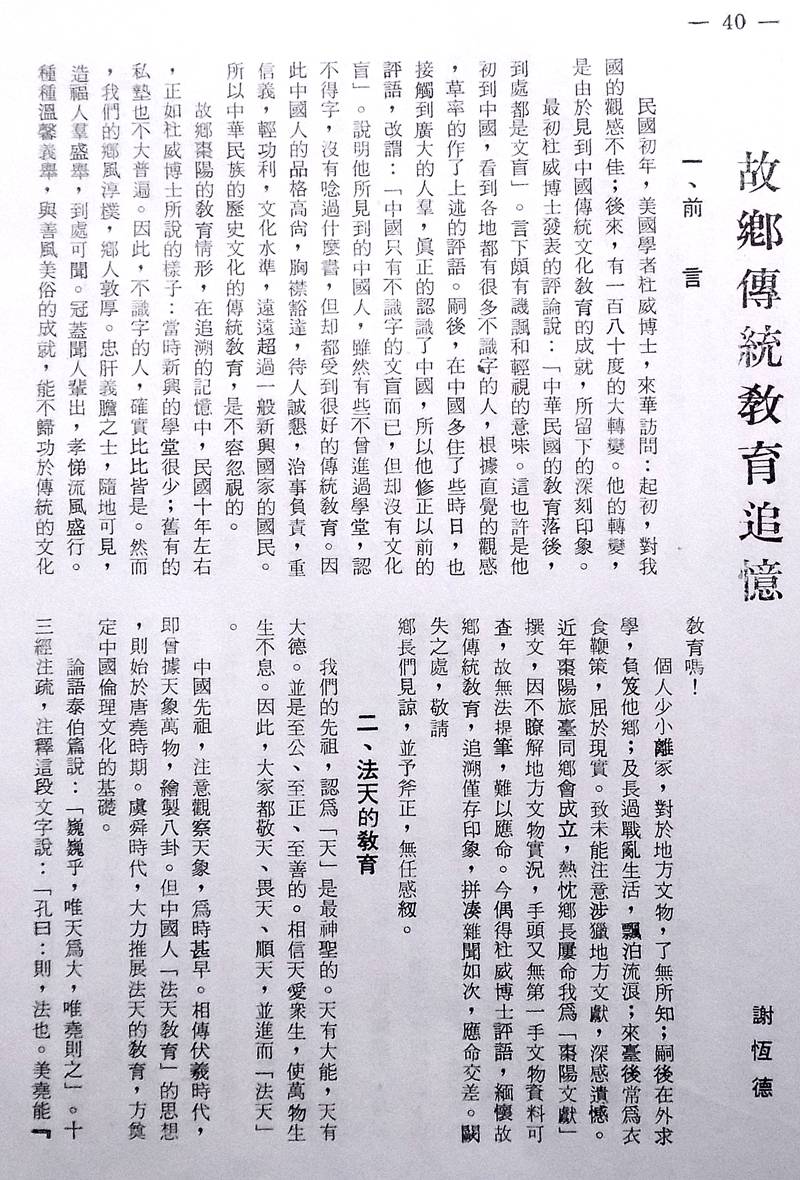 — 40 —
故鄉傳統教育追憶
謝恆德
一、前　言
民國初年，美國學者杜威博士，來華訪問：起初，對我
國的觀感不佳；後來，有一百八十度的大轉變。他的轉變，
是由於見到中國傳統文化教育的成就，所留下的深刻印象。
最初杜威博士發表的評論說：「中華民國的教育落後，
到處都是文盲」。言下頗有譏諷和輕視的意味。這也許是他
初到中國，看到各地都有很多不識字的人，根據直覺的觀感
，草率的作了上述的評語。嗣後，在中國多住了些時日，也
接觸到廣大的人羣，眞正的認識了中國，所以他修正以前的
評語，改謂：「中國只有不識字的文盲而已，但却沒有文化
盲」。說明他所見到的中國人，雖然有些不曾進過學堂，認
不得字，沒有唸過什麽書，但却都受到很好的傳統教育。因
此中國人的品格高尙，胸襟豁達，待人誠懇，治事負責，重
信義，輕功利，文化水準，遠遠超過一般新興國家的國民。
所以中華民族的歷史文化的傳統教育，是不容忽視的。
故鄉棗陽的教育情形，在追溯的記憶中，民國十年左右
，正如杜威博士所說的樣子：當時新興的學堂很少；舊有的
私塾也不大普遍。因此，不識字的人，確實比比皆是。然而
，我們的鄉風淳樸，鄉人敦厚。忠肝義膽之士，隨地可見，
造福人羣盛舉，到處可聞。冠蓋聞人輩出，孝悌流風盛行。
種種溫馨義舉，與善風美俗的成就，能不歸功於傳統的文化
教育嗎！
個人少小離家，對於地方文物，了無所知；嗣後在外求
學，負笈他鄉；及長過戰亂生活，飄泊流浪；來臺後常爲衣
食鞭策，屈於現實。致未能注意涉獵地方文獻，深感遺憾。
近年棗陽旅臺同鄉會成立，熱忱鄉長屢命我爲「棗陽文獻」
撰文，因不瞭解地方文物實況，手頭又無第一手文物資料可
查，故無法提筆，難以應命。今偶得杜威博士評語，緬懷故
鄉傳統教育，追溯僅存印象，拼凑雜聞如次，應命交差。闕
失之處，敬請
鄉長們見諒，並予斧正，無任感紉。
二、法天的教育
我們的先祖，認爲「天」是最神聖的。天有大能，天有
大德。並是至公、至正、至善的。相信天愛衆生，使萬物生
生不息。因此，大家都敬天、畏天、順天，並進而「法天」
。
中國先祖，注意觀察天象，爲時甚早。相傳伏羲時代，
即曾據天象萬物，繪製八卦。但中國人「法天教育」的思想
，則始於唐堯時期。虞舜時代，大力推展法天的教育，方奠
定中國倫理文化的基礎。
論語泰伯篇說：「巍巍乎，唯天爲大，唯堯則之」。十
三經注疏，注釋這段文字說：「孔曰：則，法也。美堯能『